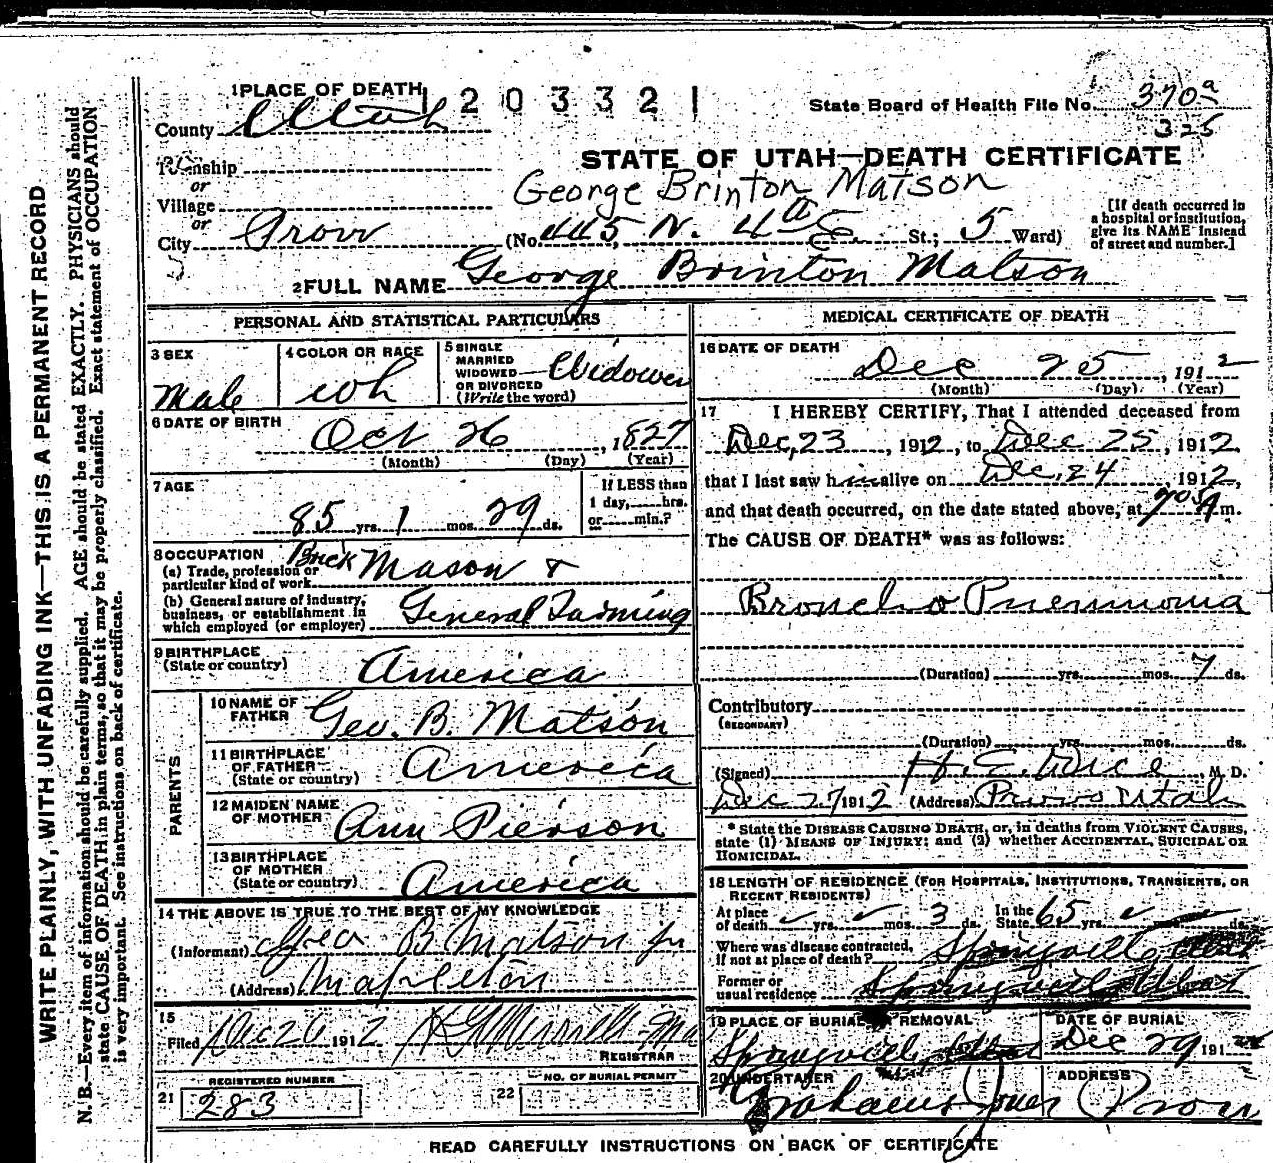 1 PLACE OF DEATH
1 2 0 3 3 2 1
State Board of Health File No. 370a
325
County Utah
STATE OF UTAH—DEATH CERTIFICATE
George Brinton Matson
or
Village
or
City Provo (No. 445 N. 4th E. St.; 5 Ward)
[If death occurred in
a hospital or institution,
give its NAME instead
of street and number.]
2 FULL NAME George Brinton Matson
PERSONAL AND STATISTICAL PARTICULARS
3 SEX Male
4 COLOR OR RACE wh
5 SINGLE
MARRIED
WIDOWED
OR DIVORCED
(Write the word) Widower
6 DATE OF BIRTH
Oct 26, 1827
(Month) (Day) (Year)
7 AGE
85 yrs. 1 mos. 29 ds.
If LESS than
1 day, hrs.
or min.?
8 OCCUPATION
(a) Trade, profession or
particular kind of work Brick Mason &
(b) General nature of industry,
business, or establishment in
which employed (or employer) General Farming
9 BIRTHPLACE
(State or country) America
PARENTS
10 NAME OF
FATHER Geo. B. Matson
11 BIRTHPLACE
OF FATHER
(State or country) America
12 MAIDEN NAME
OF MOTHER Ann Pierson
13 BIRTHPLACE
OF MOTHER
(State or country) America
14 THE ABOVE IS TRUE TO THE BEST OF MY KNOWLEDGE
(Informant) Geo B Matson Jr
(Address) Mapleton
15
Filed Dec 26 1912
REGISTRAR
REGISTERED NUMBER
21 283
22 NO. OF BURIAL PERMIT
MEDICAL CERTIFICATE OF DEATH
16 DATE OF DEATH
Dec 25, 1912
(Month) (Day) (Year)
17 I HEREBY CERTIFY, That I attended deceased from
Dec, 23, 1912, to Dec 25, 1912,
that I last saw him alive on Dec, 24 1912,
and that death occurred, on the date stated above, at 705 A m.
The CAUSE OF DEATH* was as follows:
Broncho Pneumonia
(Duration) yrs. mos. 7 ds.
Contributory
(SECONDARY)
(Duration) yrs. mos. ds.
(Signed) M. D.
Dec 27 1912 (Address) Provo Utah
* State the DISEASE CAUSING DEATH, or, in deaths from VIOLENT CAUSES,
state (1) MEANS OF INJURY; and (2) whether ACCIDENTAL, SUICIDAL OR
HOMICIDAL.
18 LENGTH OF RESIDENCE (FOR HOSPITALS, INSTITUTIONS, TRANSIENTS, OR
RECENT RESIDENTS)
At place
of death yrs. mos. 3 ds. In the
State 65 yrs. ds.
Where was disease contracted,
if not at place of death? Springville Utah
Former or
usual residence Springville Utah
19 PLACE OF BURIAL OR REMOVAL
Springville Utah
DATE OF BURIAL
Dec 29 191
20 UNDERTAKER
ADDRESS
Provo
READ CAREFULLY INSTRUCTIONS ON BACK OF CERTIFICATE
WRITE PLAINLY, WITH UNFADING INK—THIS IS A PERMANENT RECORD
N. B.—Every item of information should be carefully supplied. AGE should be stated EXACTLY. PHYSICIANS should
state CAUSE OF DEATH in plain terms, so that it may be properly classified. Exact statement of OCCUPATION
is very important. See instructions on back of certificate.